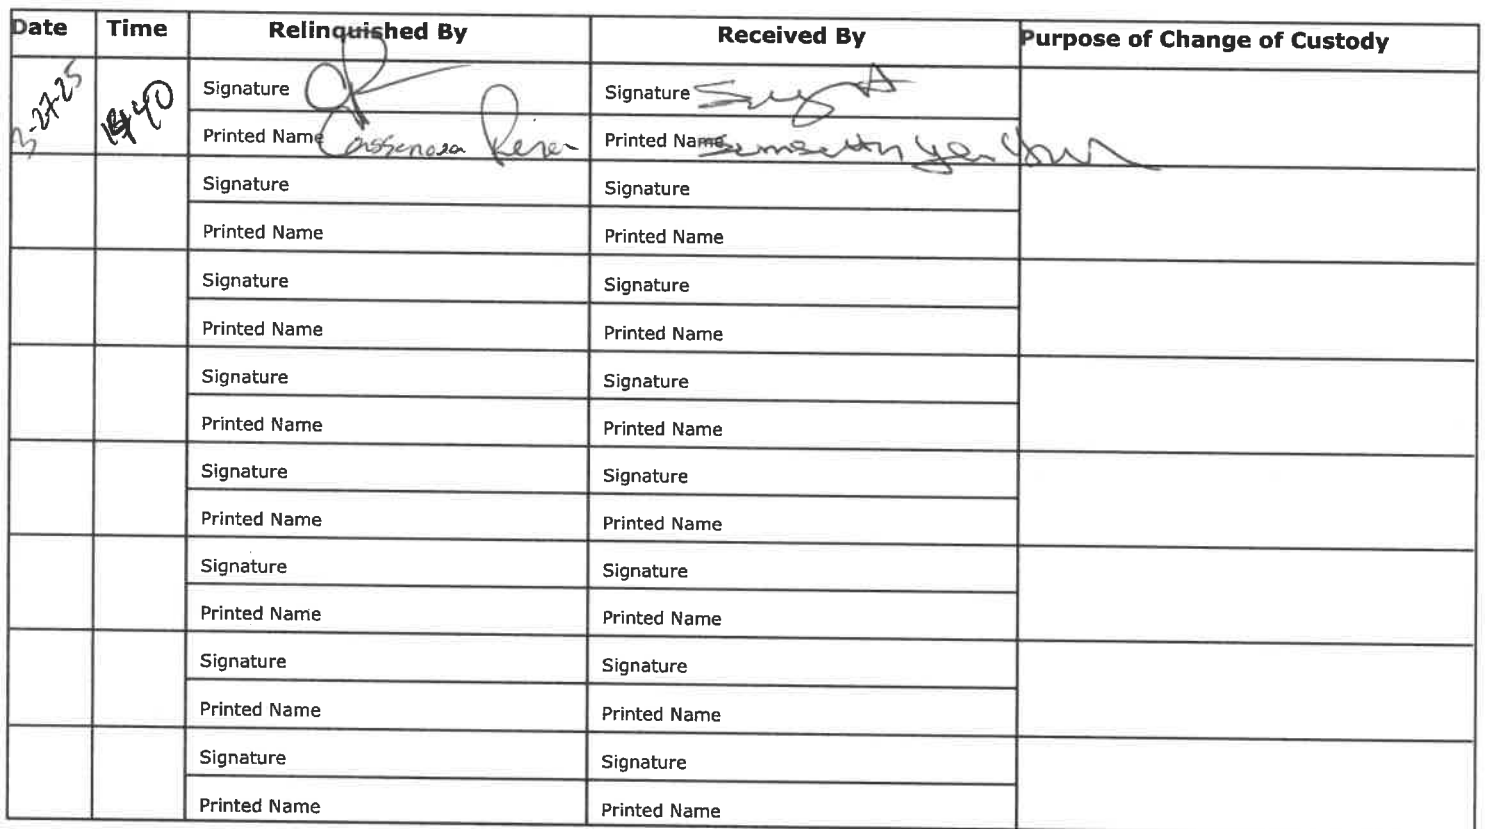 Date Time Relinquished By Received By Purpose of Change of Custody
3-27-25 Signature Signature
Printed Name Printed Name
Signature Signature
Printed Name Printed Name
Signature Signature
Printed Name Printed Name
Signature Signature
Printed Name Printed Name
Signature Signature
Printed Name Printed Name
Signature Signature
Printed Name Printed Name
Signature Signature
Printed Name Printed Name
Signature Signature
Printed Name Printed Name